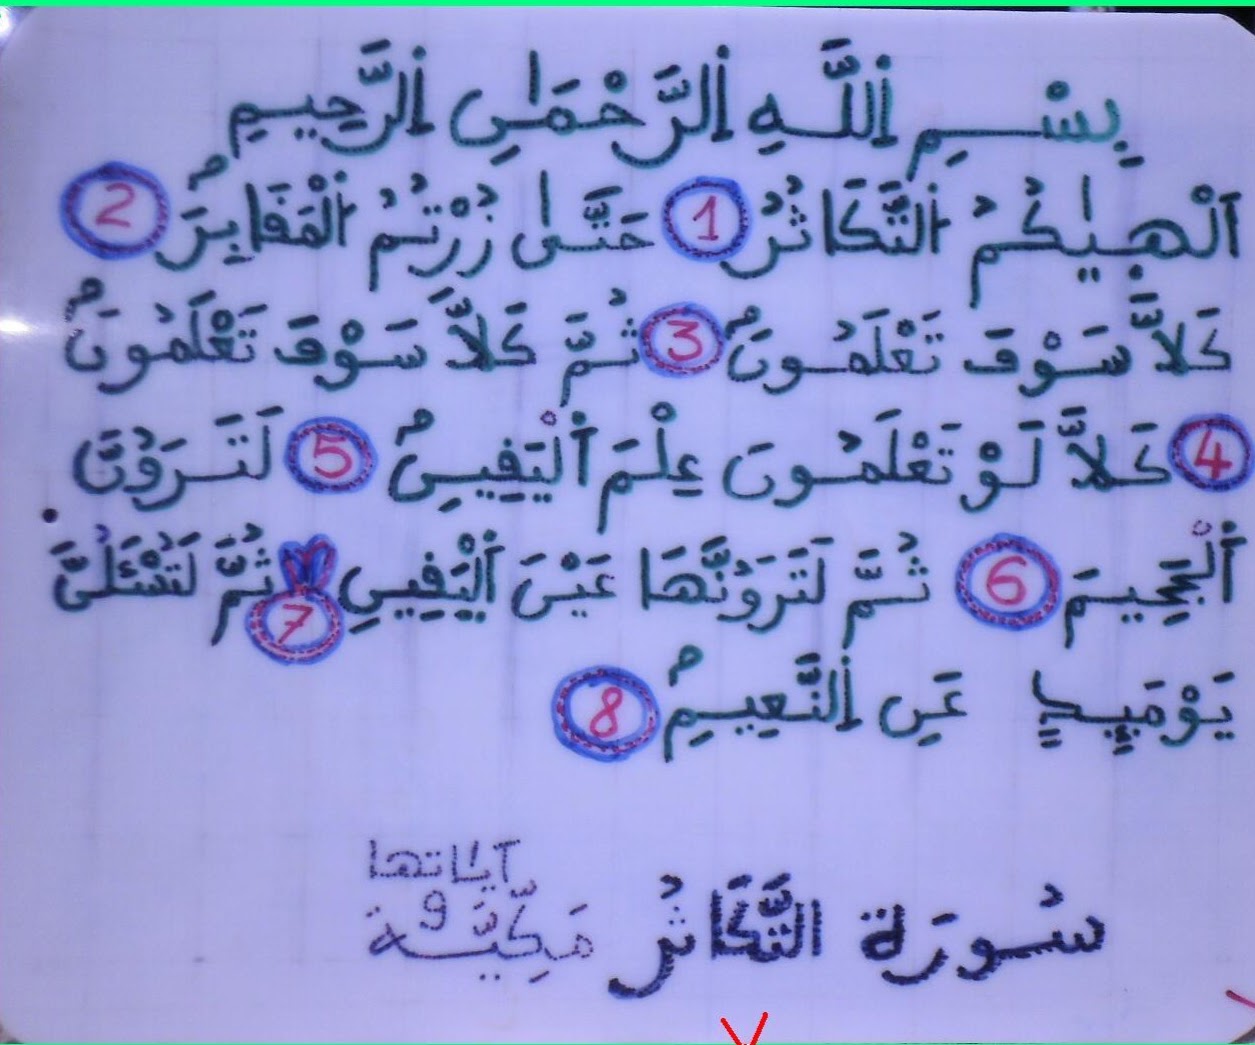 بِسْمِ اِ۬للَّهِ اِ۬لرَّحْمَٰنِ اِ۬لرَّحِيمِ
أَلْه۪يٰكُمُ اُ۬لتَّكَاثُرُ 1 حَتَّىٰ زُرْتُمُ اُ۬لْمَقَابِرَۖ 2
كَلَّا سَوْفَ تَعْلَمُونَۖ 3 ثُمَّ كَلَّا سَوْفَ تَعْلَمُونَۖ
4 كَلَّا لَوْ تَعْلَمُونَ عِلْمَ اَ۬لْيَقِينِۖ 5 لَتَرَوُنَّ
اَ۬لْجَحِيمَ 6 ثُمَّ لَتَرَوُنَّهَا عَيْنَ اَ۬لْيَقِينِ 7 ثُمَّ لَتُسْـَٔلُنَّ
يَوْمَئِذٍ عَنِ اِ۬لنَّعِيمِۖ 8
آيَاتها
سُورَة التَّكَاثُر مَكِّيَّة و